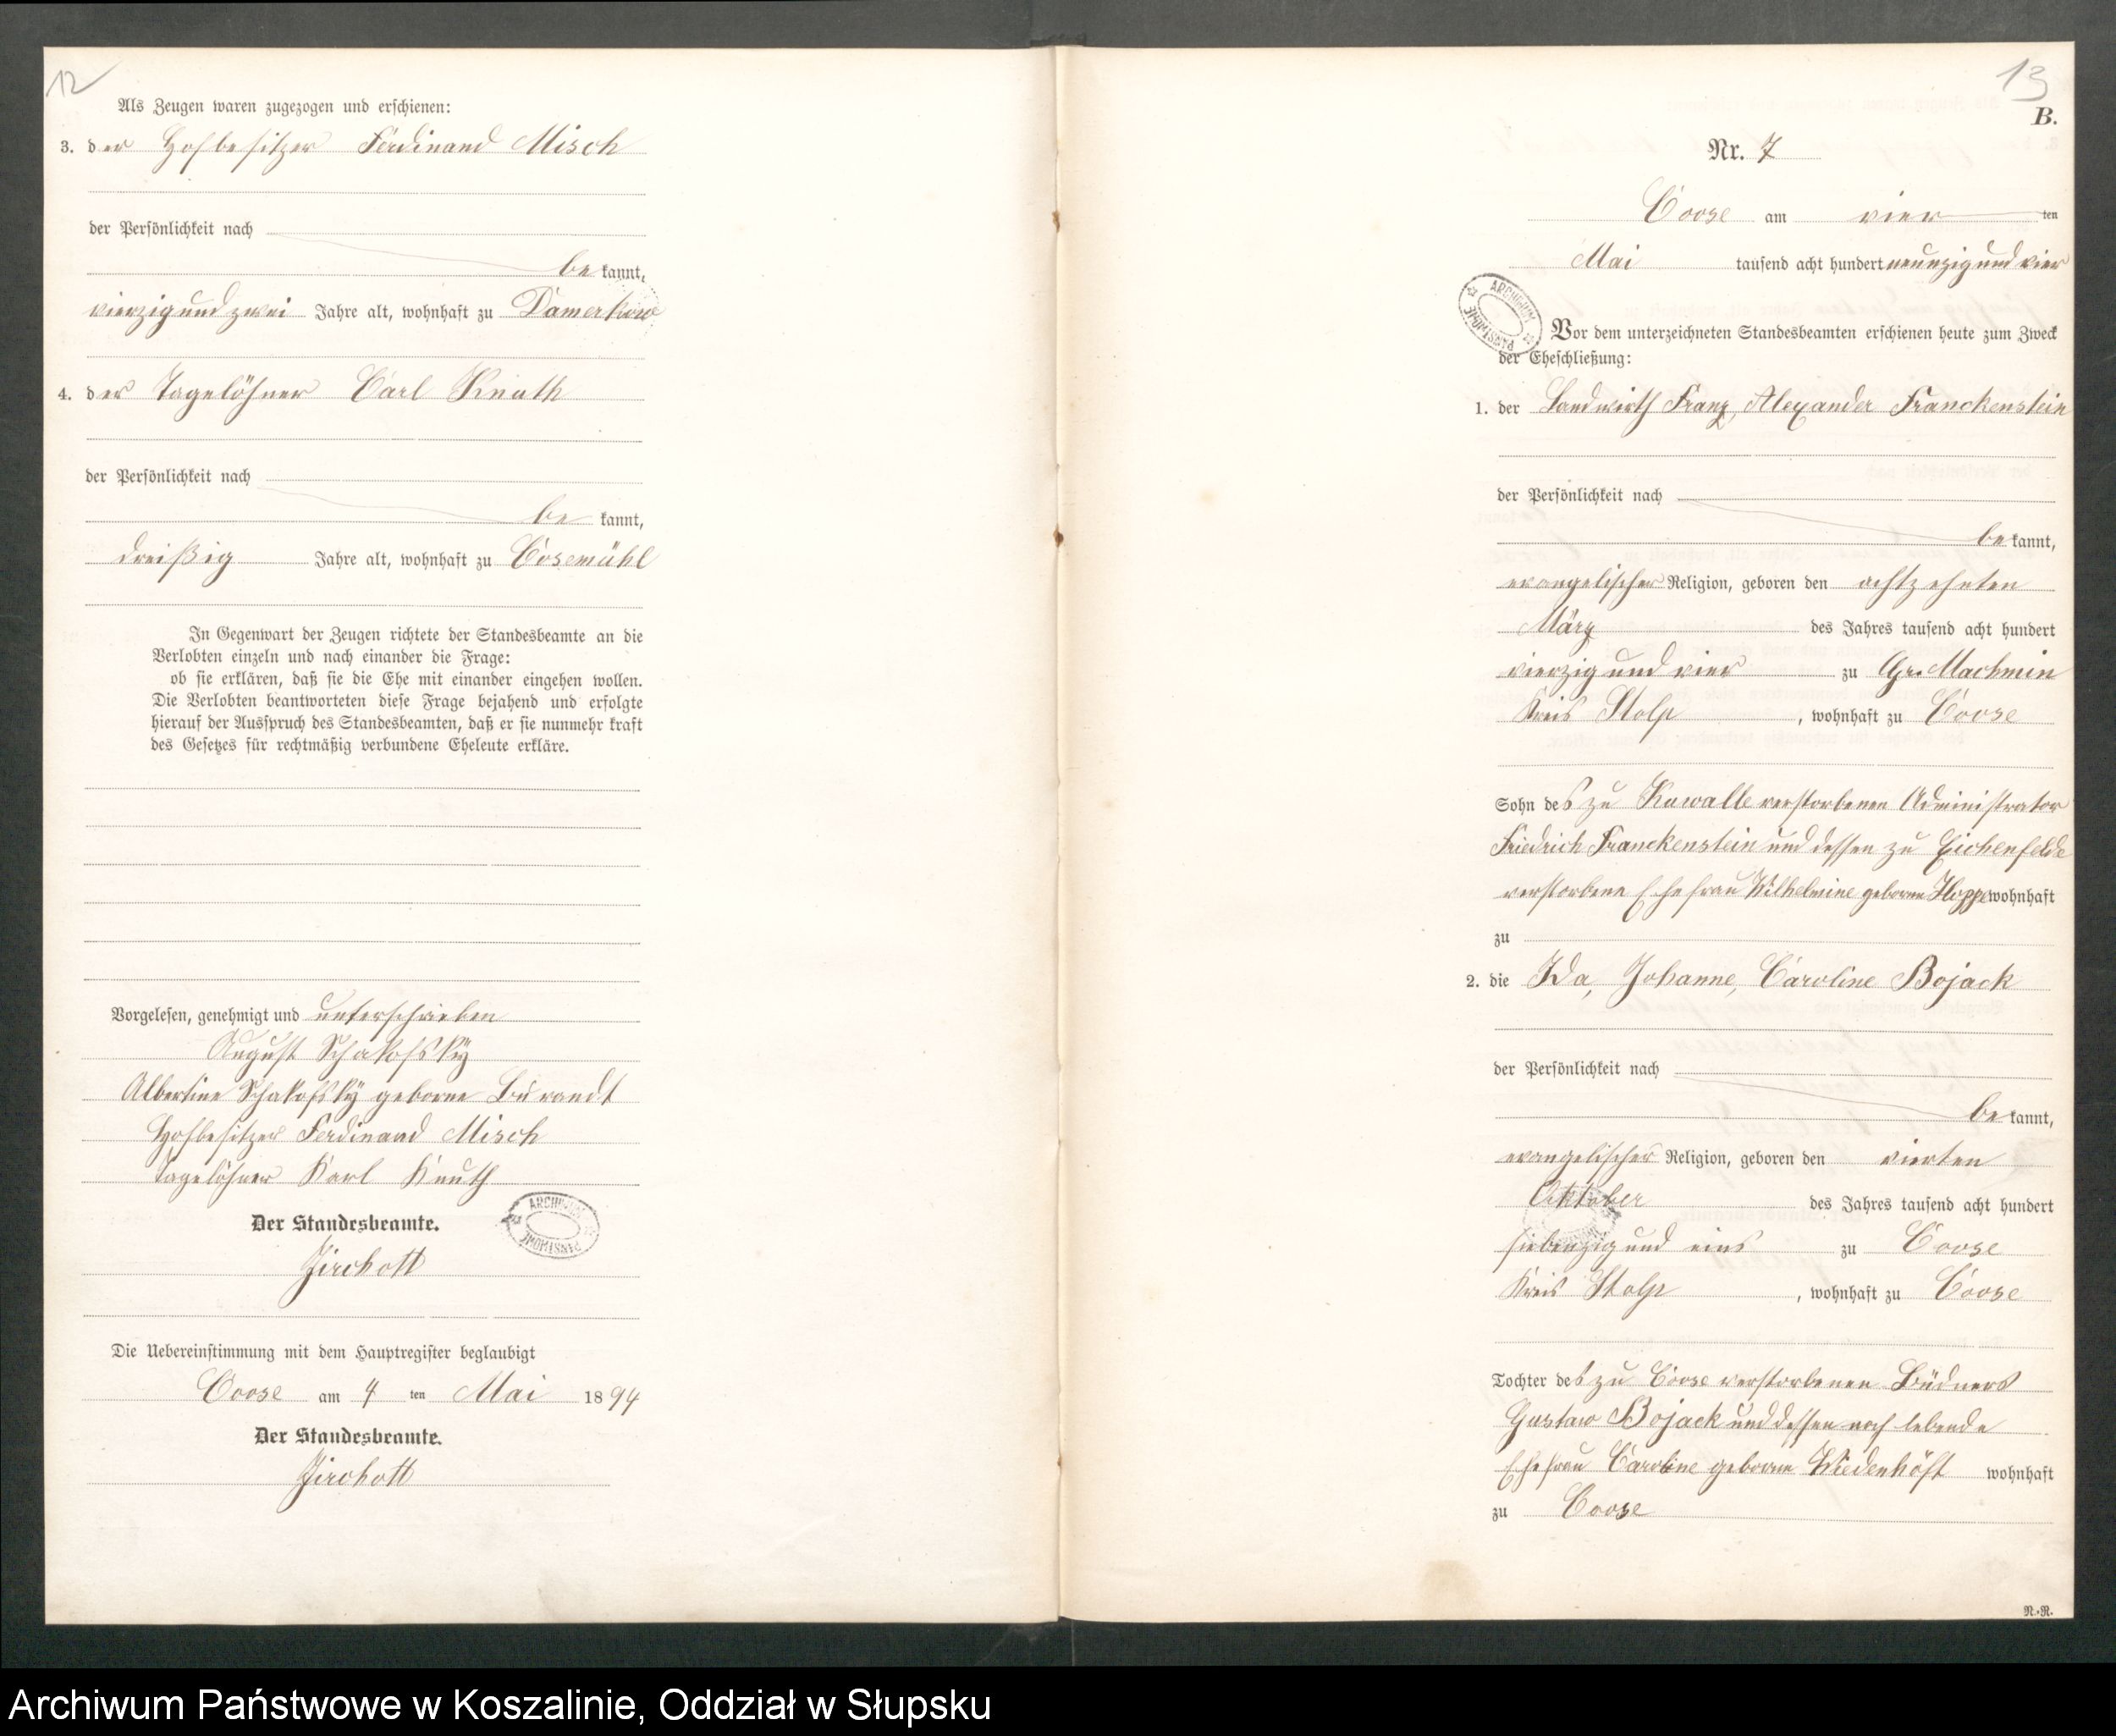 12
Als Zeugen waren zugezogen und erschienen:
3. der Hofbesitzer Ferdinand Misch
der Persönlichkeit nach
be kannt,
vierzig und zwei Jahre alt, wohnhaft zu Damerkow
4. der Tagelöhner Carl Knuth
der Persönlichkeit nach
be kannt,
dreißig Jahre alt, wohnhaft zu Cosemühl
In Gegenwart der Zeugen richtete der Standesbeamte an die
Verlobten einzeln und nach einander die Frage:
ob sie erklären, daß sie die Ehe mit einander eingehen wollen.
Die Verlobten beantworteten diese Frage bejahend und erfolgte
hierauf der Ausspruch des Standesbeamten, daß er sie nunmehr kraft
des Gesetzes für rechtmäßig verbundene Eheleute erkläre.
Vorgelesen, genehmigt und unterschrieben
August Schakofsky
Albertine Schakofsky geborne Burandt
Hofbesitzer Ferdinand Misch
Tagelöhner Karl Knuth
Der Standesbeamte.
ARCHIWUM PAŃSTWOWE
Die Uebereinstimmung mit dem Hauptregister beglaubigt
Coose am 4 ten Mai 1894
Der Standesbeamte.
13
B.
Nr. 7
Coose am vier ten
Mai tausend acht hundert neunzig und vier
ARCHIWUM PAŃSTWOWE
Vor dem unterzeichneten Standesbeamten erschienen heute zum Zweck
der Eheschließung:
1. der Landwirth Franz, Alexander Franckenstein
der Persönlichkeit nach
be kannt,
evangelischer Religion, geboren den achtzehnten
März des Jahres tausend acht hundert
vierzig und vier zu Gr. Machmin
Kreis Stolp, wohnhaft zu Coose
Sohn des zu Kuwalle verstorbenen Administrator
Friedrich Franckenstein und dessen zu Eichenfelde
verstorbene Ehefrau Wilhelmine geborne Hoppe wohnhaft
zu
2. die Ida, Johanne, Caroline Bojack
der Persönlichkeit nach
be kannt,
evangelischer Religion, geboren den vierten
Oktober des Jahres tausend acht hundert
siebenzig und eins zu Coose
Kreis Stolp, wohnhaft zu Coose
Tochter des zu Coose verstorbenen Büdners
Gustav Bojack und dessen noch lebende
Ehefrau Caroline geborne Wiedenhöft wohnhaft
zu Coose
N.-R.
Archiwum Państwowe w Koszalinie, Oddział w Słupsku